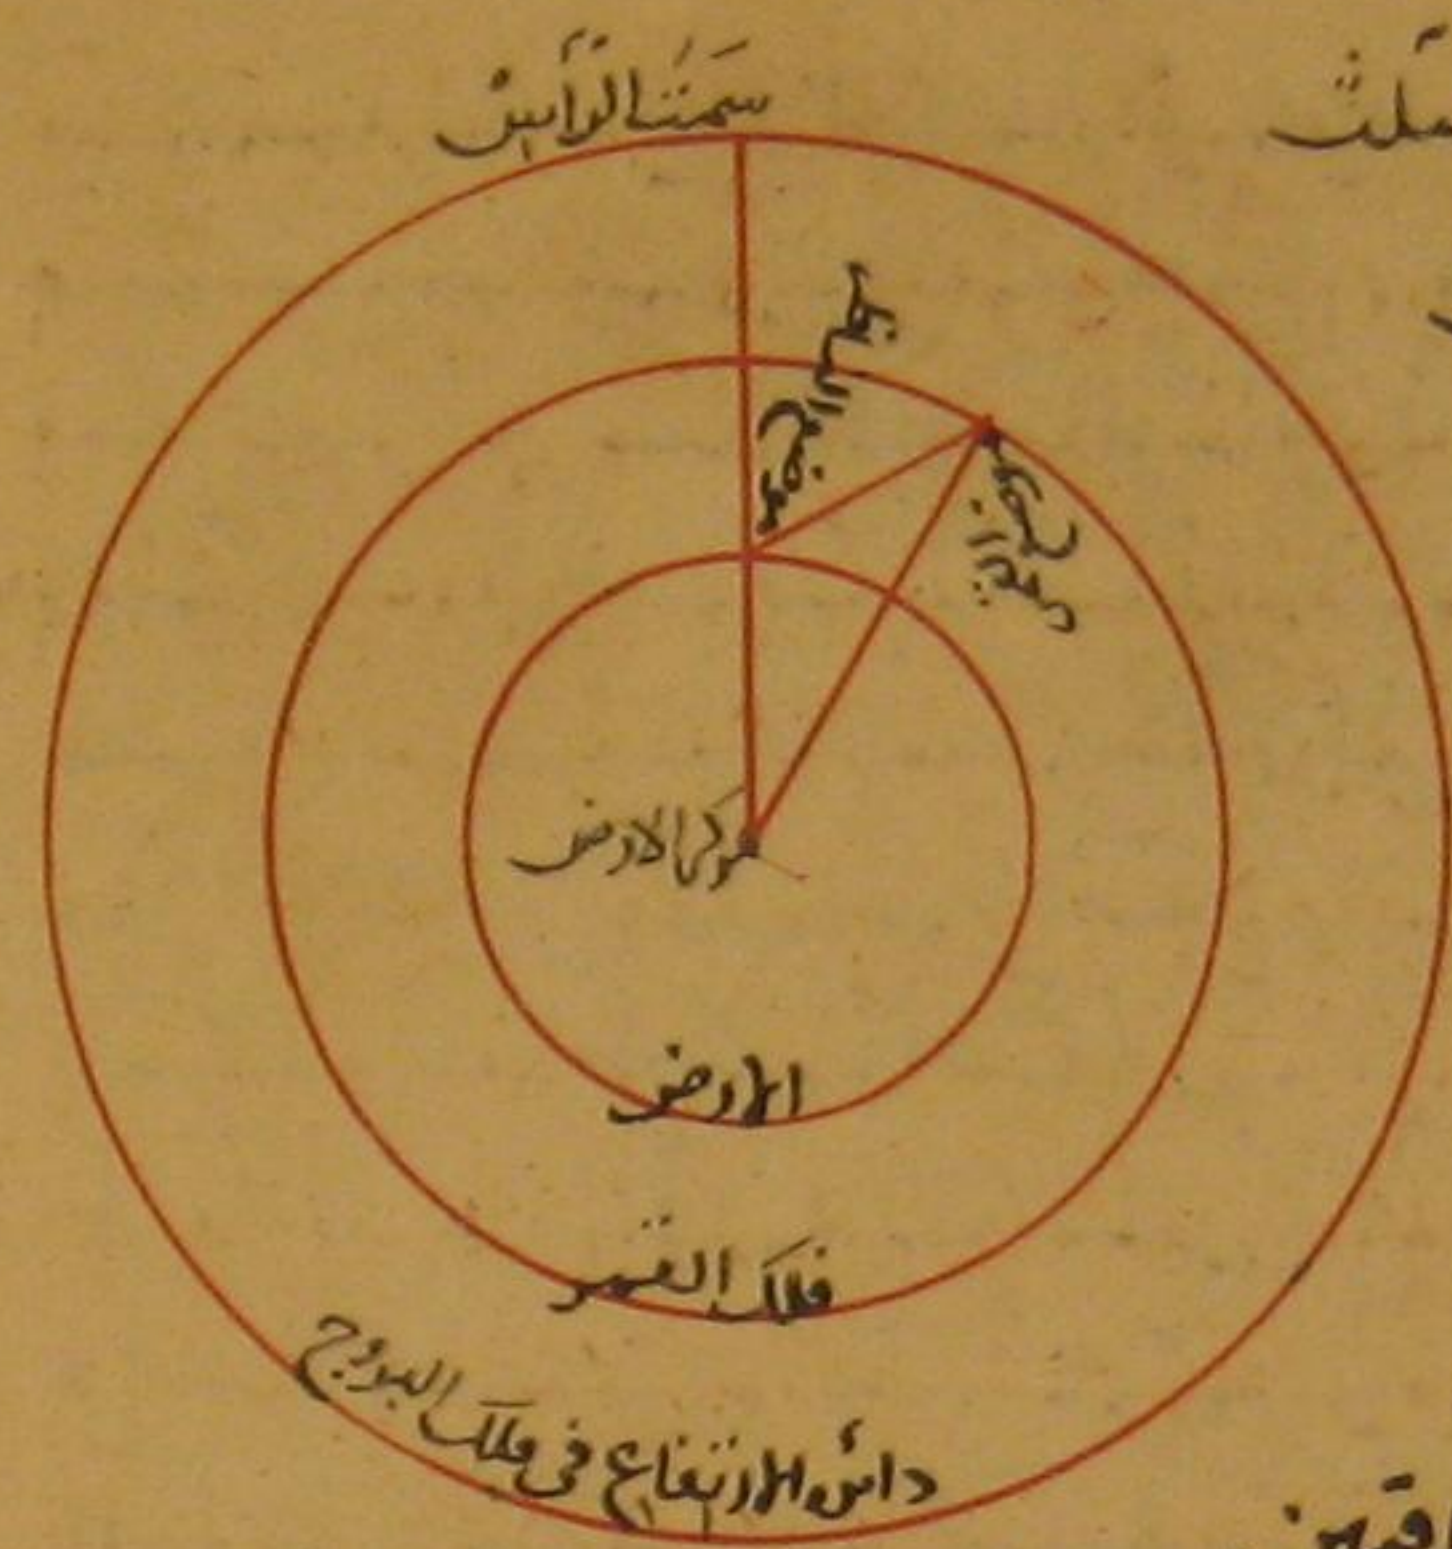 سمت الرأس
موضع النظر
مركز الارض
الارض
فلك القمر
دائرة الارتفاع فى فلك البروج